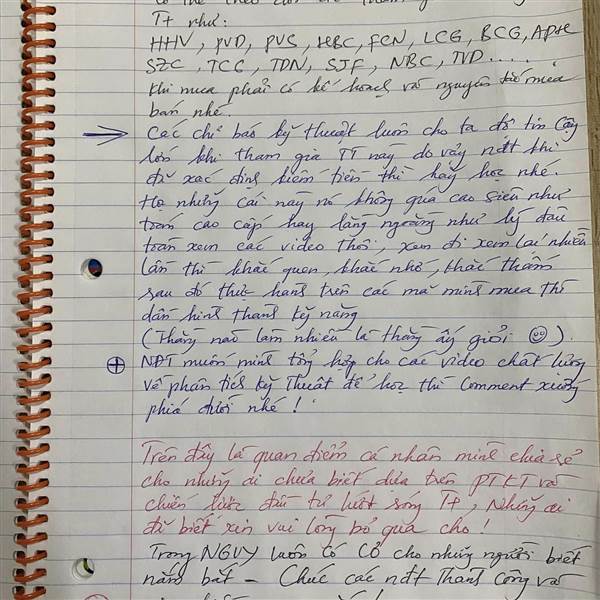 có thể theo dõi để tham
T+ như:
HHV, PVD, PVS, HBC, FCN, LCG, BCG, APH
SZC, TCG, TDN, SJF, NBC, TVD.....
Khi mua phải có kế hoạch và nguyên tắc mua
bán nhé.
Các chỉ báo kỹ thuật luôn cho ta độ tin cậy
lớn khi tham gia TT này do vậy ndt khi
đã xác định kiếm tiền thì hãy học nhé.
Họ những cái này nó không quá cao siêu như
toán cao cấp hay lằng ngoằng như lý đâu
toàn xem các video thôi, xem đi xem lại nhiều
lần thì khắc quen, khắc nhớ, khắc thấm
sau đó thực hành trên các mã mình mua thì
dần hình thành kỹ năng
(Thằng nào làm nhiều là thằng ấy giỏi ☺).
⊕ NĐT muốn mình tổng hợp cho các video chất lượng
về phân tích kỹ thuật để học thì comment xuống
phía dưới nhé!
Trên đây là quan điểm cá nhân mình chia sẻ
cho những ai chưa biết dựa trên PTKT và
chiến lược đầu tư lướt sóng T+, Những ai
đã biết xin vui lòng bỏ qua cho!
Trong NGUY luôn có CƠ cho những người biết
nắm bắt - Chúc các ndt Thành công và